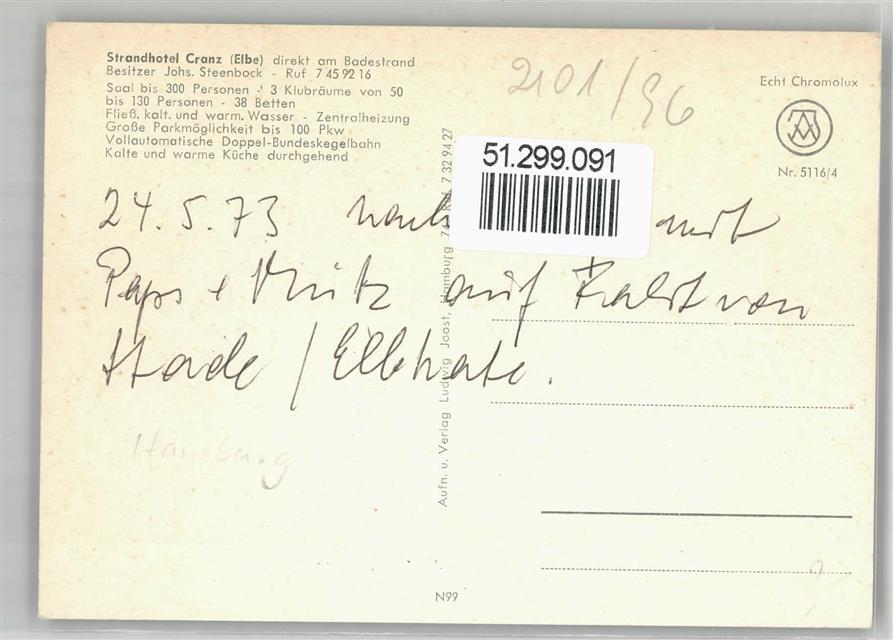 Strandhotel Cranz (Elbe) direkt am Badestrand
Besitzer Johs. Steenbock - Ruf 7 45 92 16
Saal bis 300 Personen - 3 Klubräume von 50
bis 130 Personen - 38 Betten
Fließ. kalt. und warm. Wasser - Zentralheizung
Große Parkmöglichkeit bis 100 Pkw
Vollautomatische Doppel-Bundeskegelbahn
Kalte und warme Küche durchgehend
2101/96
Echt Chromolux
Nr. 5116/4
51.299.091
24.5.73 nach mit
Paps + auf von
Stade / 
Hamburg
Aufn. u. Verlag Ludwig Joost, Hamburg Ruf 7 32 94 27
N99